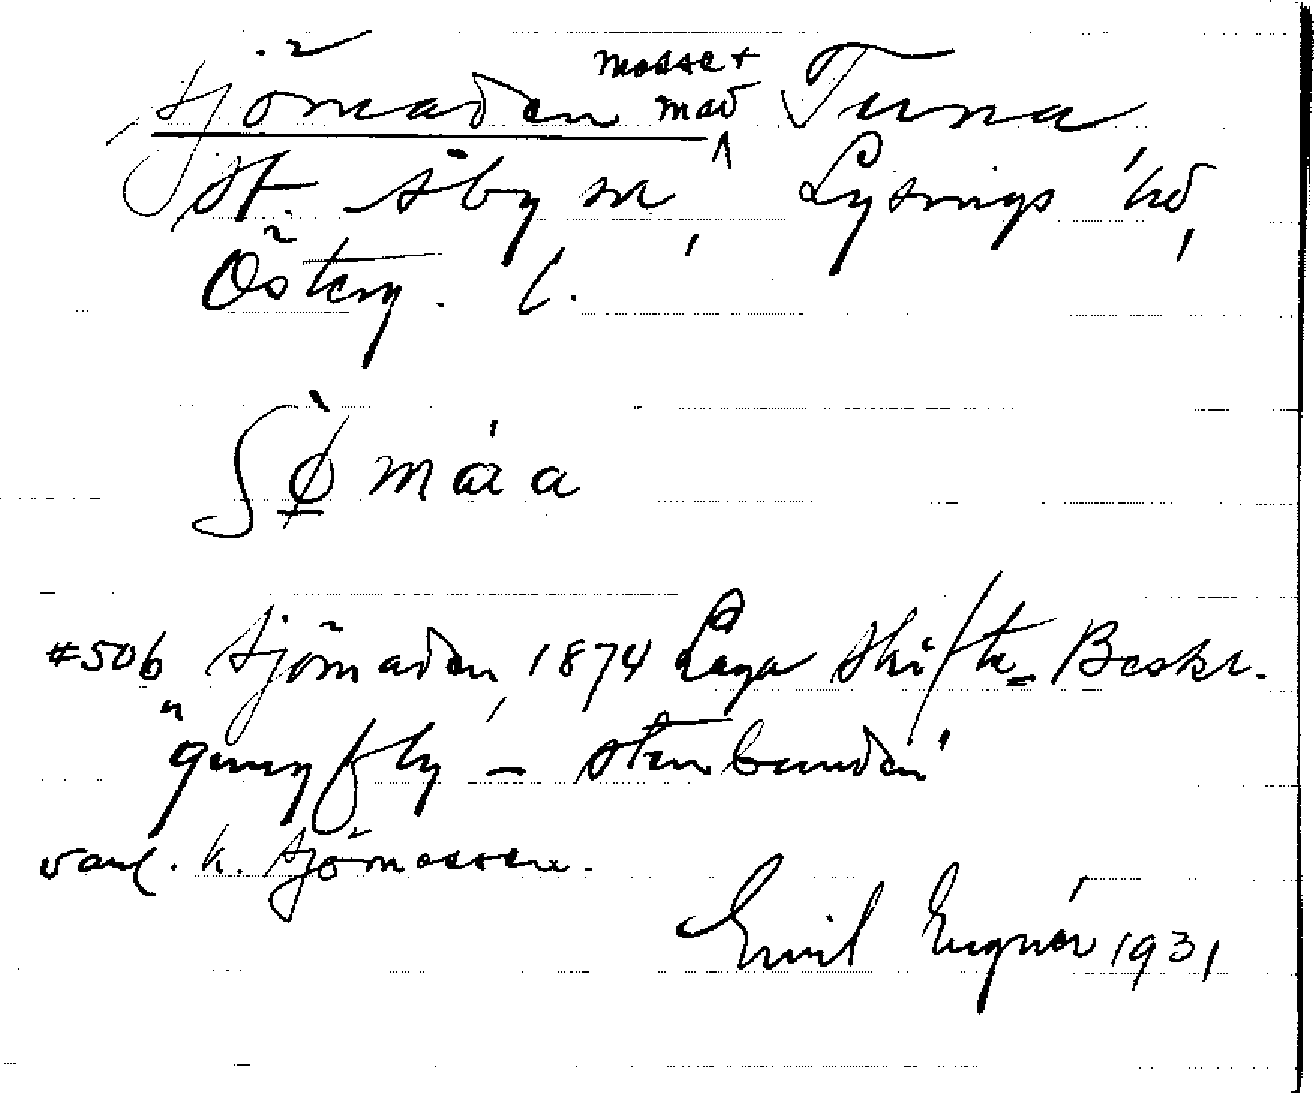 Sjömaden mosse + mad Tuna
St. Åby sn, Lysings hd,
Österg. l.
#506 Sjömaden, 1874 Laga Skifte Beskr.
"gungfly - stenbunden"
vanl. k. Sjömossen.
Emil Eugnér 1931